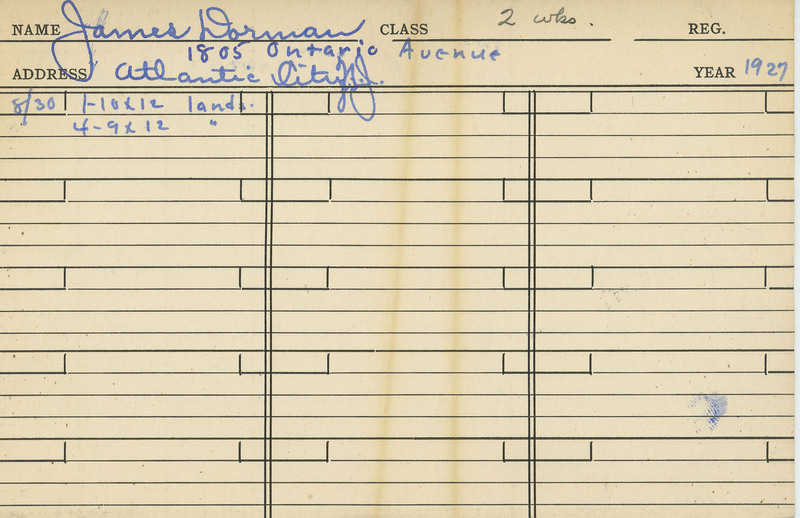 NAME James Dorman CLASS 2 wks. REG.
1805 Ontario Avenue
ADDRESS Atlantic City N.J. YEAR 1927
8/30 1-10x12 lands.
4-9x12 "